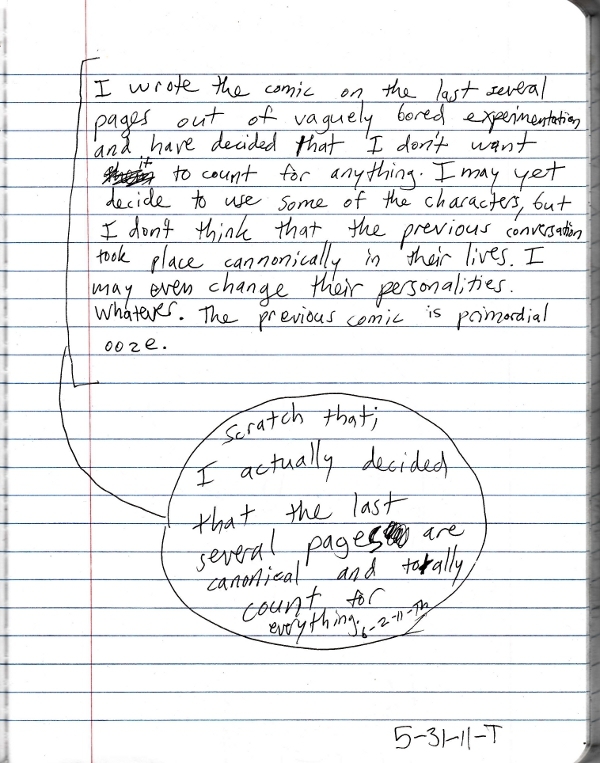 I wrote the comic on the last several
pages out of vaguely bored experimentation
and have decided that I don't want
it to count for anything. I may yet
decide to use some of the characters, but
I don't think that the previous conversation
took place cannonically in their lives. I
may even change their personalities.
Whatever. The previous comic is primordial
ooze.
Scratch that;
I actually decided
that the last
several pages are
canonical and totally
count for
everything. 6-2-11-Th
5-31-11-T